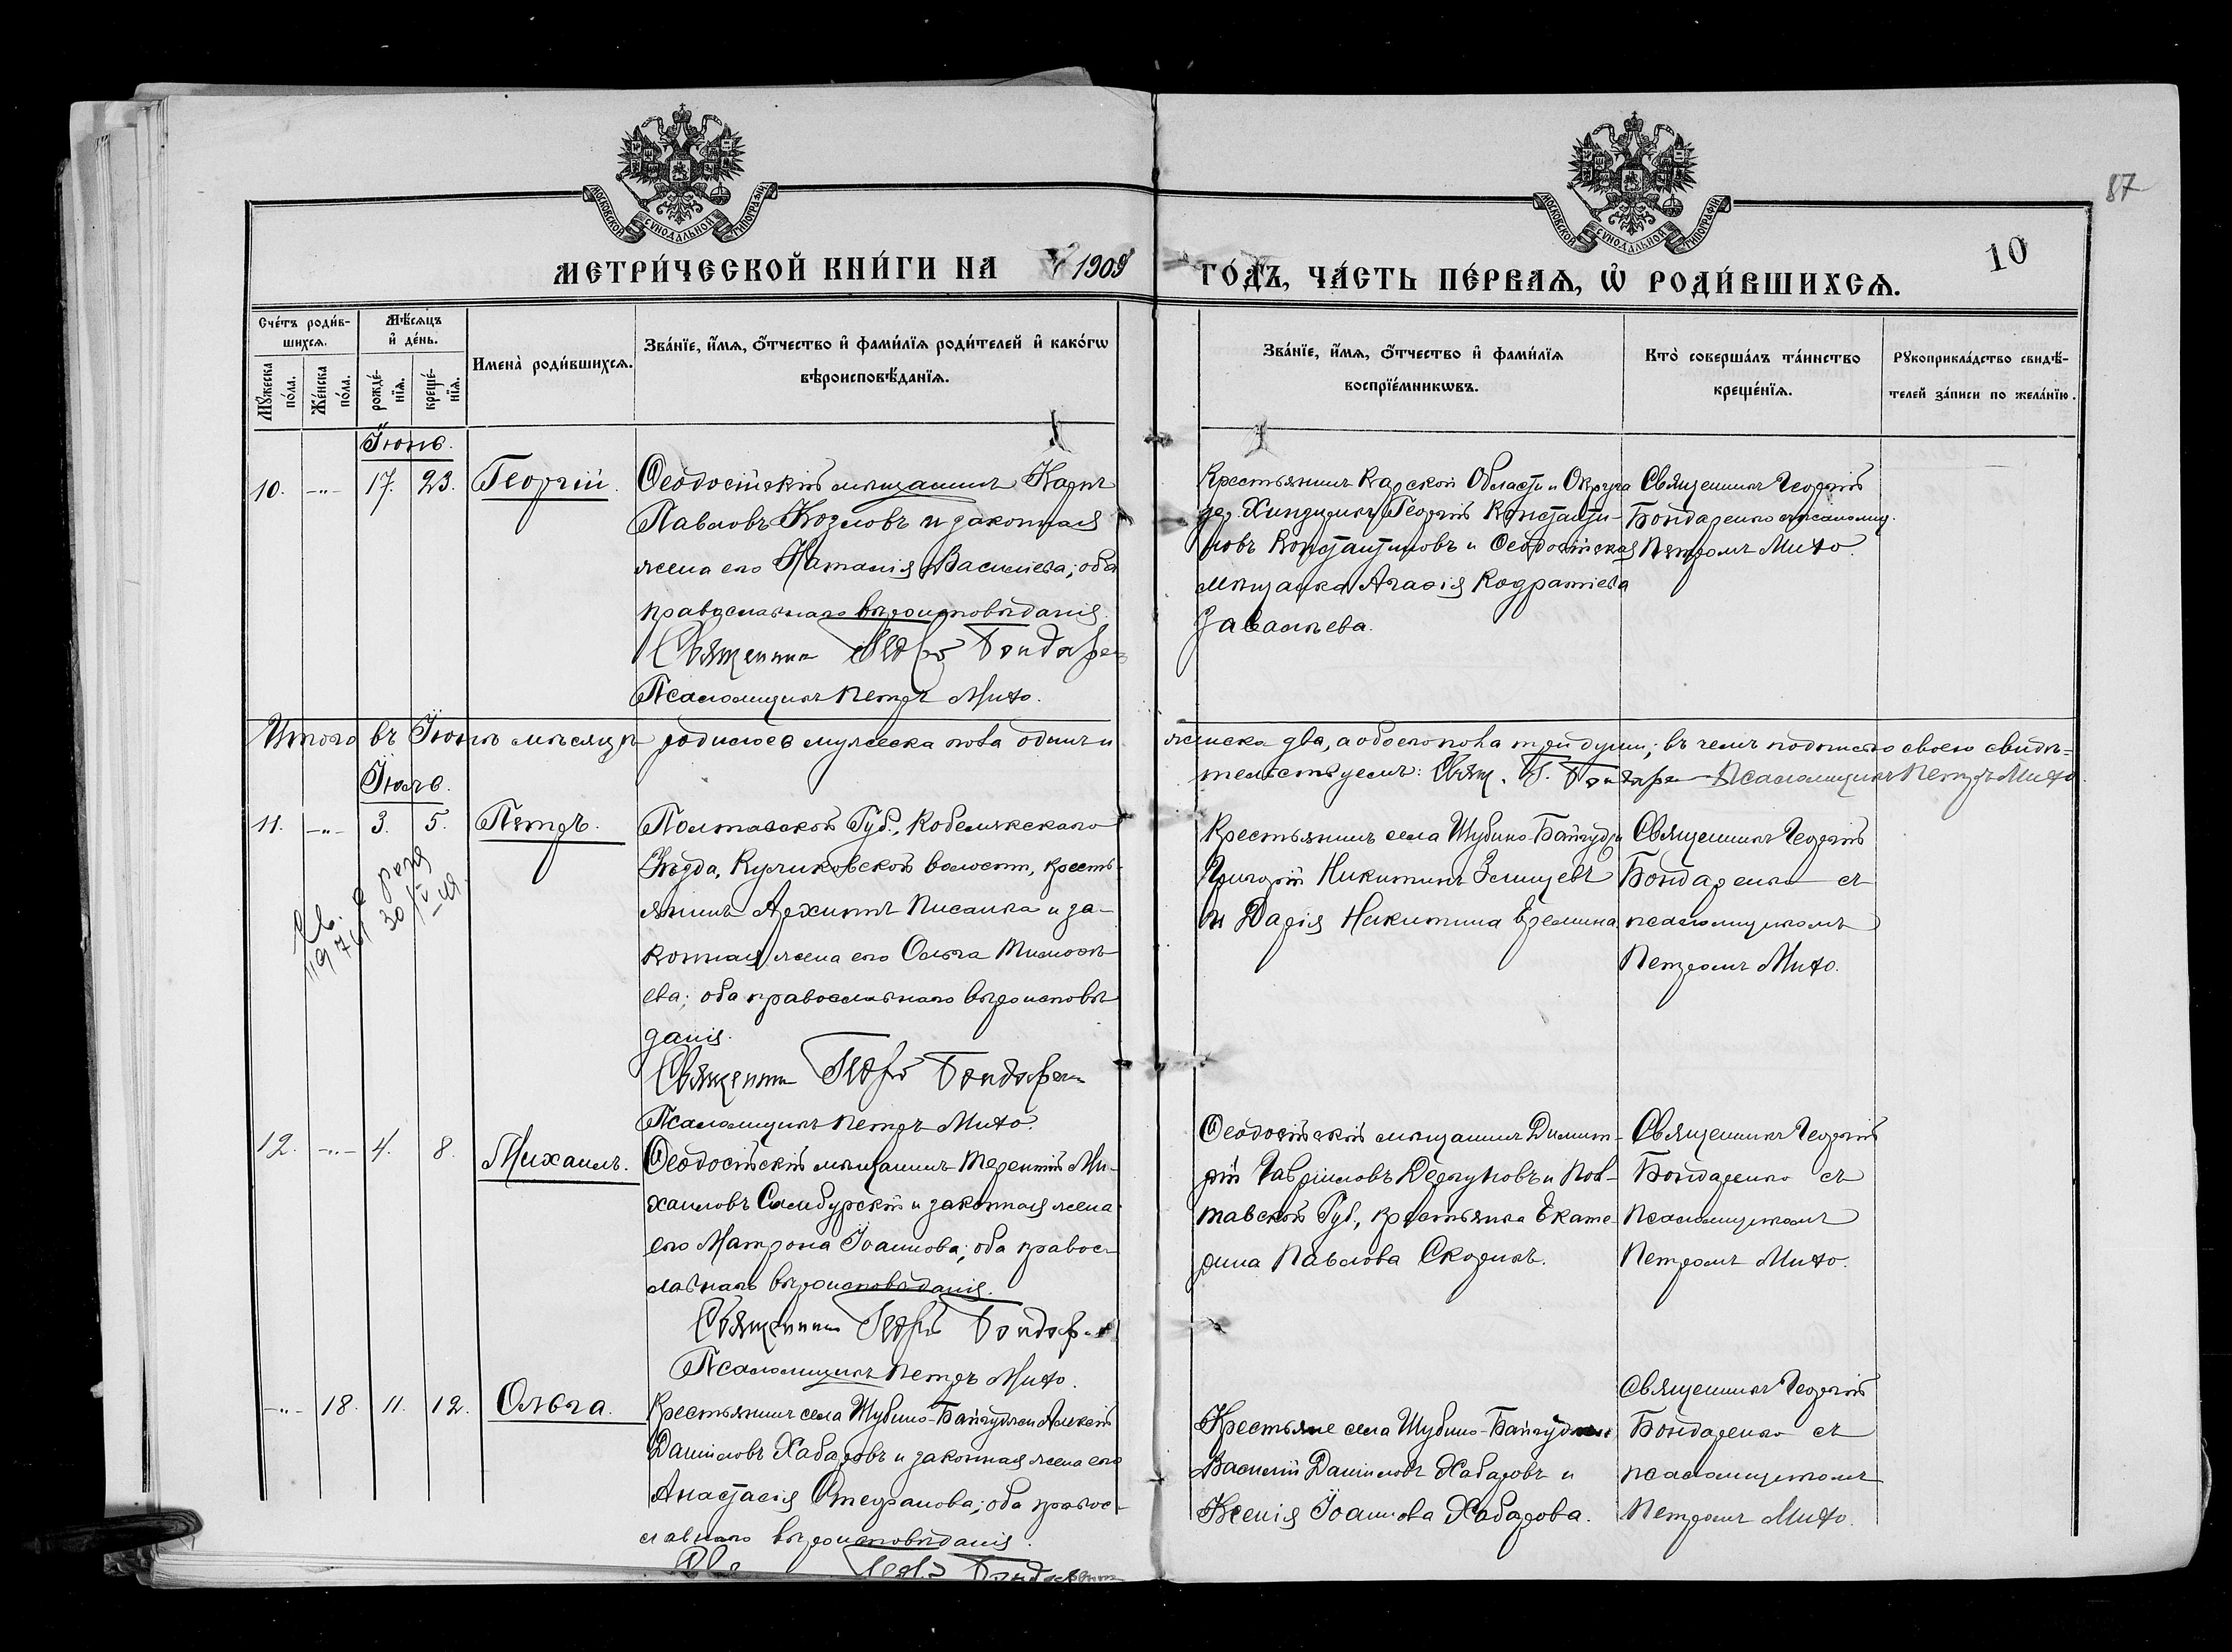 87
10
МОСКОВСКОЙ СѴНОДАЛЬНОЙ ТИПОГРАФІИ
МОСКОВСКОЙ СѴНОДАЛЬНОЙ ТИПОГРАФІИ
МЕТРИ́ЧЕСКОЙ КНИ́ГИ НА 1909 ГО́ДЪ, ЧА́СТЬ ПЕ́РВАѦ, Ѡ҆ РОДИ́ВШИХСѦ.
Сче́тъ роди́в-
шихсѧ.
Мꙋ́жеска
по́ла.
Же́нска
по́ла.
Мѣ́сѧцъ
и҆ де́нь.
рожде́-
нїѧ.
креще́-
нїѧ.
Имена̀ роди́вшихсѧ.
Зва́нїе, и҆́мѧ, ѻ҆́тчество и҆ фами́лїѧ роди́телей и҆ како́гѡ
вѣроисповѣ́данїѧ.
Зва́нїе, и҆́мѧ, ѻ҆́тчество и҆ фами́лїѧ
воспрїе́мникѡвъ.
Кто̀ соверша́лъ та́инство
креще́нїѧ.
Рꙋкоприкла́дство свидѣ́-
телей за́писи по жела́нїю.
Іюнь.
10. -„- 17. 23. Георгій.
Ѳеодосійскій мѣщанинъ Карпъ
Павловъ Козловъ и законная
жена его Наталія Васильева; оба
православнаго вѣроисповѣданія.
Священникъ Георгій Бондаренко
Псаломщикъ Петръ Мито.
Крестьянинъ Карской Области и Округа
дер. Георгій Константи-
новъ Константиновъ и Ѳеодосійская
мѣщанка Агаѳія Кодратіева
Завалъева.
Священникъ Георгій
Бондаренко съ псаломщ.
Петромъ Мито.
Итого въ Іюнѣ мѣсяцѣ родилось мужеска пола одинъ и женска два, а обоего пола три души; въ чемъ подписью своею свидѣ-
тельствуемъ: Свящ. Г. Бондаренко Псаломщикъ Петръ Мито.
Іюль.
11. -„- 3. 5. Петръ.
Полтавской Губ., Кобелякскаго
Уѣзда, Куликовской волости, кресть-
янинъ Архиппъ Писанка и за-
конная жена его Ольга Тимоѳѣ-
ева; оба православнаго вѣроисповѣ-
данія.
Священникъ Георгій Бондаренко
Псаломщикъ Петръ Мито.
Крестьянинъ села Шубино-Байгуджи
Григорій Никитинъ
и Дарія Никитина Еремина.
Священникъ Георгій
Бондаренко съ
псаломщикомъ
Петромъ Мито.
12. -„- 4. 8. Михаилъ.
Ѳеодосійскій мѣщанинъ Терентій Ми-
хаиловъ Самбурскій и законная жена
его Матрона Іоаннова; оба правос-
лавнаго вѣроисповѣданія.
Священникъ Георгій Бондаренко
Псаломщикъ Петръ Мито.
Ѳеодосійскій мѣщанинъ Димит-
рій Гавріиловъ Дергуновъ и Пол-
тавской Губ., крестьянка Екате-
рина Павлова Скорикъ.
Священникъ Георгій
Бондаренко съ
псаломщикомъ
Петромъ Мито.
-„- 18. 11. 12. Ольга.
Крестьянинъ села Шубино-Байгуджи Алексій
Даніиловъ Хабаровъ и законная жена его
Анастасія Стефанова; оба правос-
лавнаго вѣроисповѣданія.
Крестьяне села Шубино-Байгуджи
Василій Даніиловъ Хабаровъ и
Ксенія Іоаннова Хабарова.
Священникъ Георгій
Бондаренко съ
псаломщикомъ
Петромъ Мито.